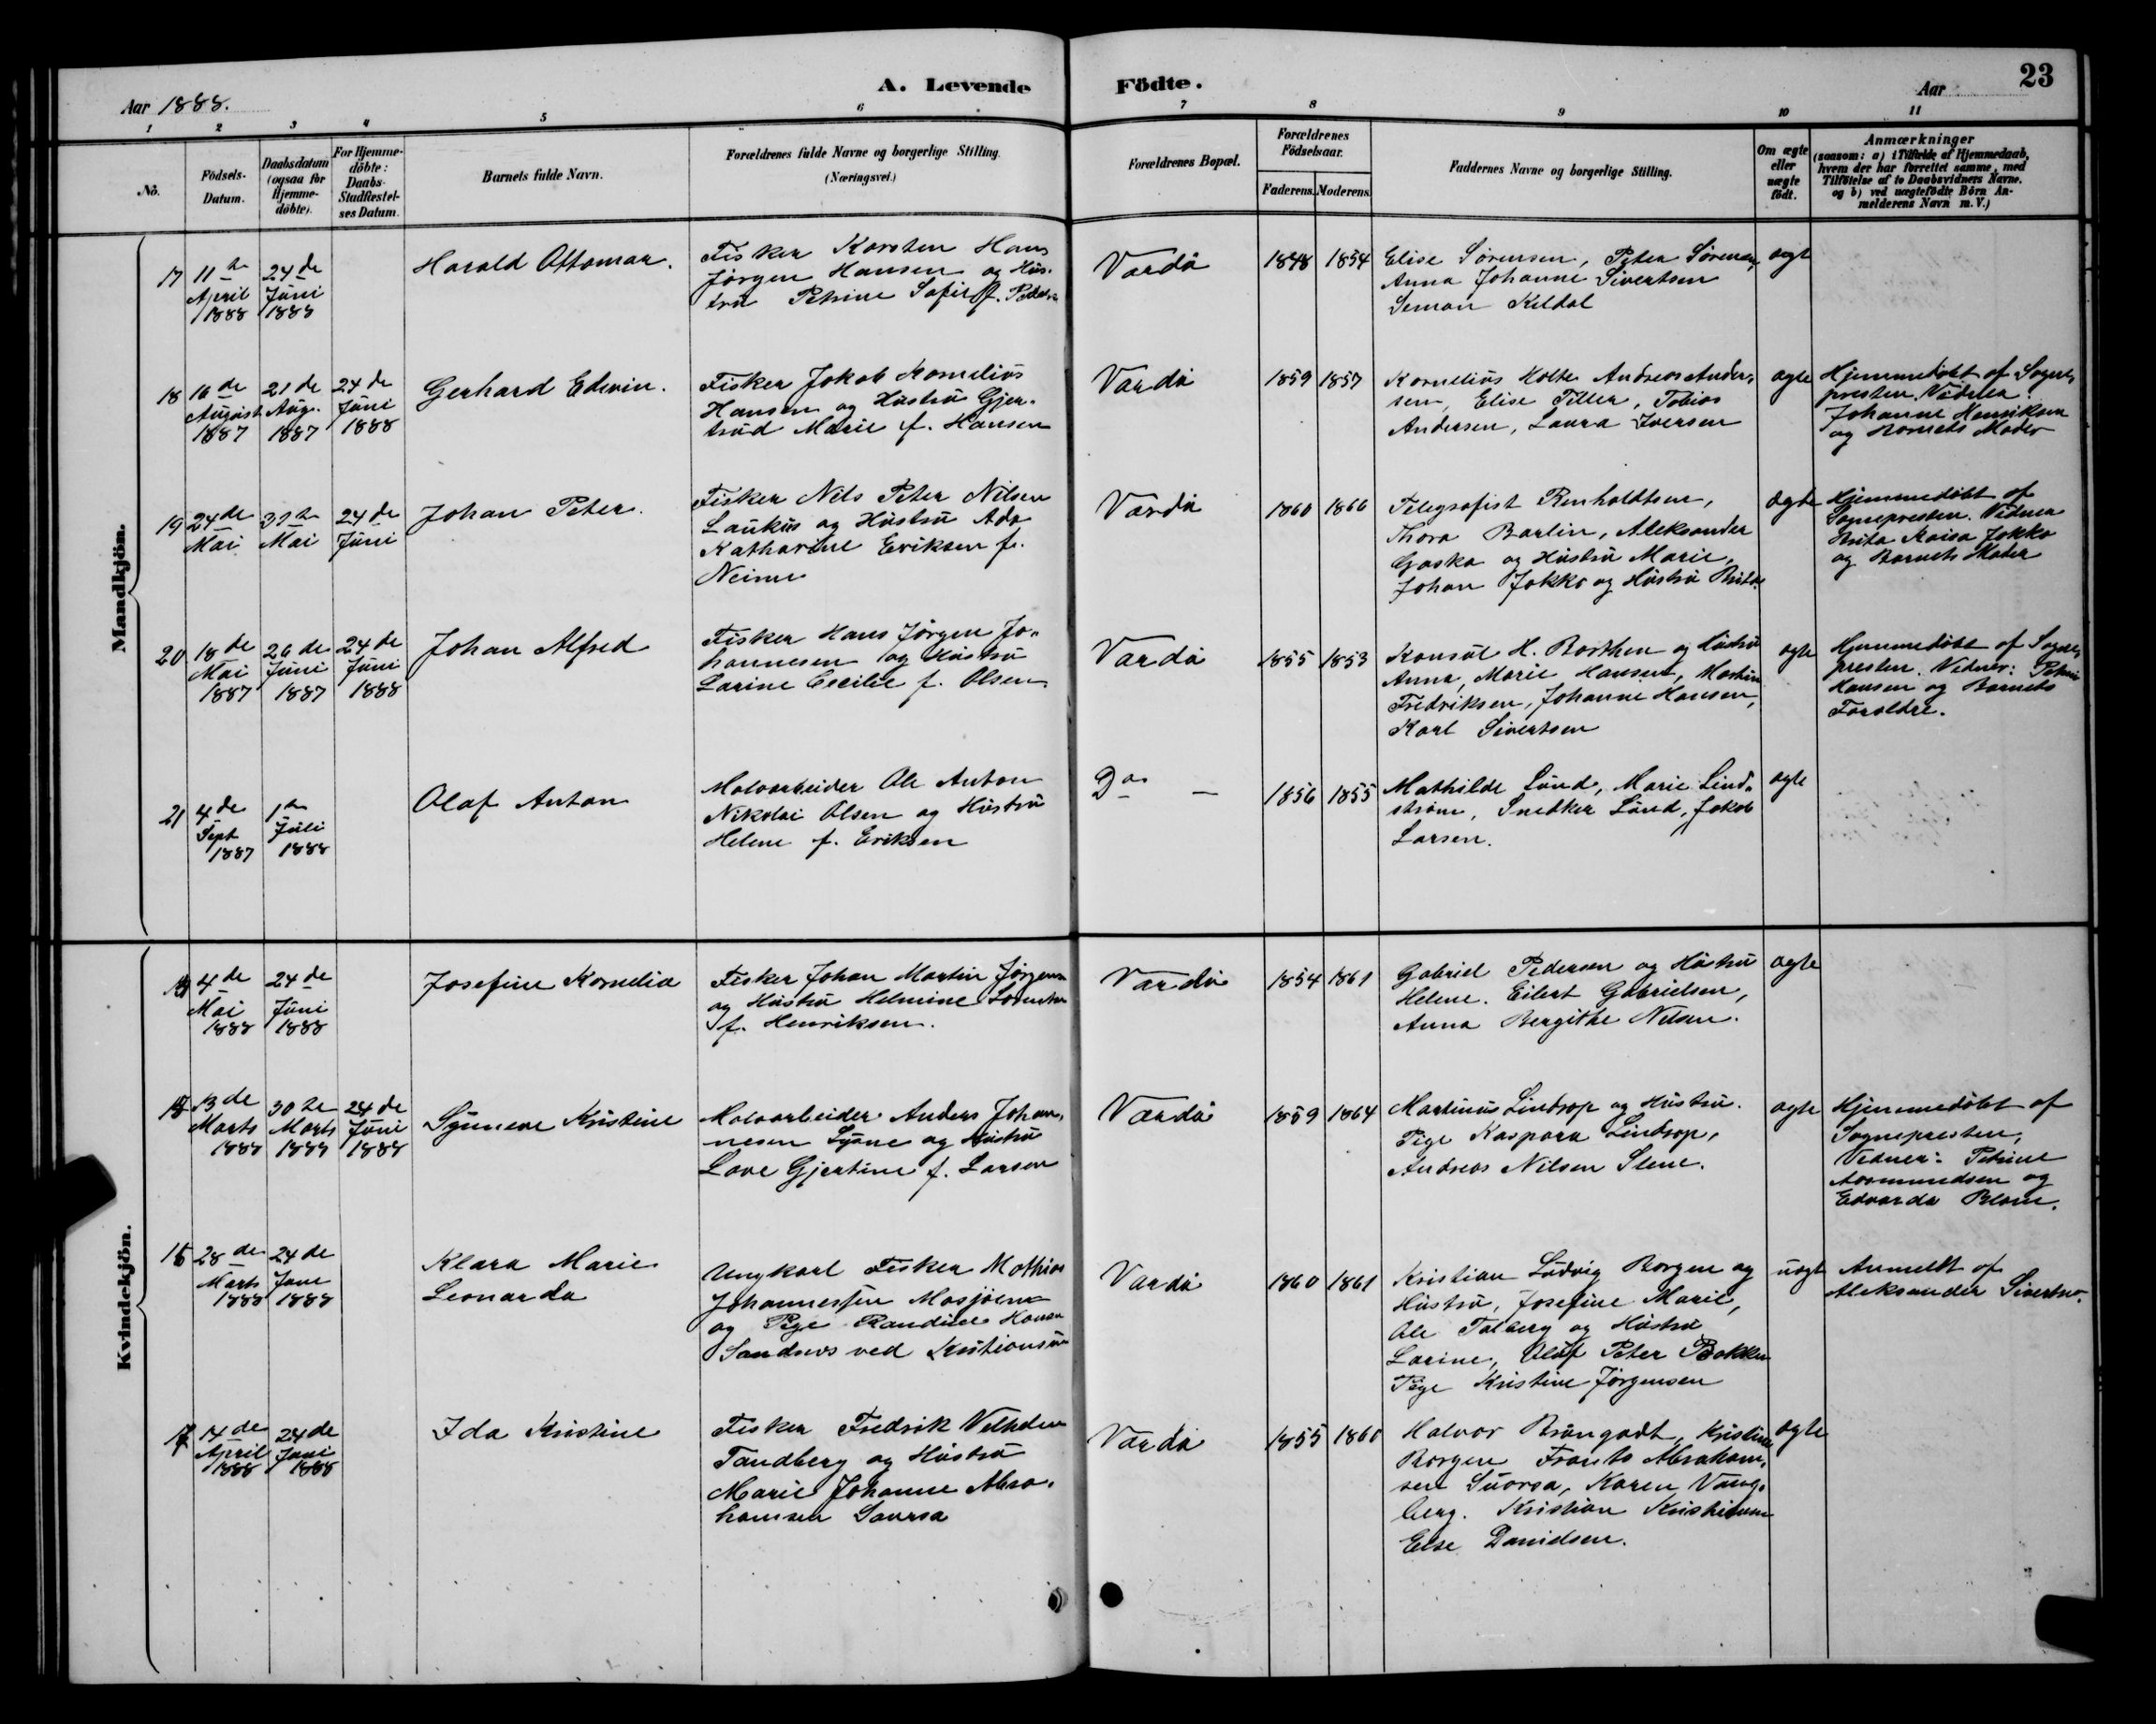 A. Levende Födte.
23
Aar 1888.
Aar
1 2 3 4 5 6 7 8 9 10 11
No.
Födsels-
Datum.
Daabsdatum
(ogsaa for
Hjemme-
döbte).
For Hjemme-
döbte:
Daabs-
Stadfæstel-
ses Datum.
Barnets fulde Navn.
Forældrenes fulde Navne og borgerlige Stilling.
(Næringsvei.)
Forældrenes Bopæl.
Forældrenes
Födselsaar.
Faderens. Moderens.
Faddernes Navne og borgerlige Stilling.
Om ægte
eller
uægte
födt.
Anmærkninger
(saasom: a) i Tilfælde af Hjemmedaab,
hvem der har forrettet samme, med
Tilföielse af to Daabsvidners Navne,
og b) ved uægtefödte Börn An-
melderens Navn m. V.)
Mandkjön.
17
11te
April
1888
24de
Juni
1888
Harald Ottomar.
Fisker Karsten Hans
Jørgen Hansen og Hus-
tru Petrine Sofie f.
Vardø
1848 1854
Elise Sørensen, Peter Sørensen,
Anna Johanne Sivertsen
Simon Kildal
ægt
18
16de
August
1887
21de
Aug.
1887
24de
Juni
1888
Gerhard Edvin.
Fisker Jakob Kornelius
Hansen og Hustru Gjer-
trud Marie f. Hansen
Vardø
1859 1857
Kornelius Holte Andreas Ander-
sen, Elise Tiller, Tobias
Andersen, Laura Iversen
ægte
Hjemmedøbt af Sogne-
presten. Vidner:
Johanne Henriksen
og Barnets Moder
19
24de
Mai
31te
Mai
24de
Juni
Johan Peter.
Fisker Nils Peter Nilsen
Laukus og Hustru Ada
Katharine Eriksen f.
Neime
Vardø
1860 1866
Telegrafist Renholdtsen,
Thora Barlin, Aleksander
Gaska og Hustru Marie,
Johan Jokko og Hustru Brita.
ægte
Hjemmedøbt af
Sognepresten. Vidner
Brita Kaisa Jokko
og Barnets Moder
20
18de
Mai
1887
26de
Juni
1887
24de
Juni
1888
Johan Alfred
Fisker Hans Jørgen Jo-
hannesen og Hustru
Larine Cecilie f. Olsen
Vardø
1855 1853
Konsul H. Borthen og Hustru
Anna, Marie Hansen, Martin
Fredriksen, Johanne Hansen,
Karl Sivertsen
ægte
Hjemmedøbt af Sogne-
presten. Vidner: Petrine
Hansen og Barnets
Forældre.
21
4de
Sept
1887
1ste
Juli
1888
Olaf Anton
Moloarbeider Ole Anton
Nikolai Olsen og Hustru
Helene f. Eriksen
Do —
1856 1855
Mathilde Lund, Marie Lind-
strøm, Snedker Lund, Jakob
Larsen.
ægte
Kvindekjön.
4de
Mai
1888
24de
Juni
1888
Josefine Kornelia
Fisker Johan Martin Jørgensen
og Hustru Helmine
f. Henriksen.
Vardø
1854 1861
Gabriel Pedersen og Hustru
Helene. Eilert Gabrielsen,
Anna Bergithe Nilsen.
ægte
13de
Marts
1888
30te
Marts
1888
24de
Juni
1888
Synneve Kristine
Moloarbeider Anders Johan-
nesen Lysne og Hustru
Lave Gjertine f. Larsen
Vardø
1859 1864
Martinus Lindrop og Hustru.
Pige Kaspara Lindrop,
Andreas Nilsen Stene.
ægte
Hjemmedøbt af
Sognepresten,
Vidner: Petrine
Aasmundsen og
Edvarda Blom.
16
28de
Marts
1888
24de
Juni
1888
Klara Marie
Leonarda
Ungkarl Fisker Mathias
Johannessen Mosjøen
og Pige Randine Hansen
Sandnes ved Kristiansund
Vardø
1860 1861
Kristian Ludvig Borgen og
Hustru, Josefine Marie,
Ole Talberg og Hustru
Larine, Oluf Peter Bakken
Pige Kristine Jørgensen
uægt
Anmeldt af
Aleksander Sivertsen.
17
14de
April
1888
24de
Juni
1888
Ida Kristine
Fisker Fredrik Vilhelm
Tandberg og Hustru
Marie Johanne Abra-
hamsen Suorsa
Vardø
1855 1860
Halvor Brungodt, Kristine
Borgen Frants Abraham-
sen Suorsa, Karen Vang-
berg. Kristian Kristiansen
Else Danielsen.
ægte